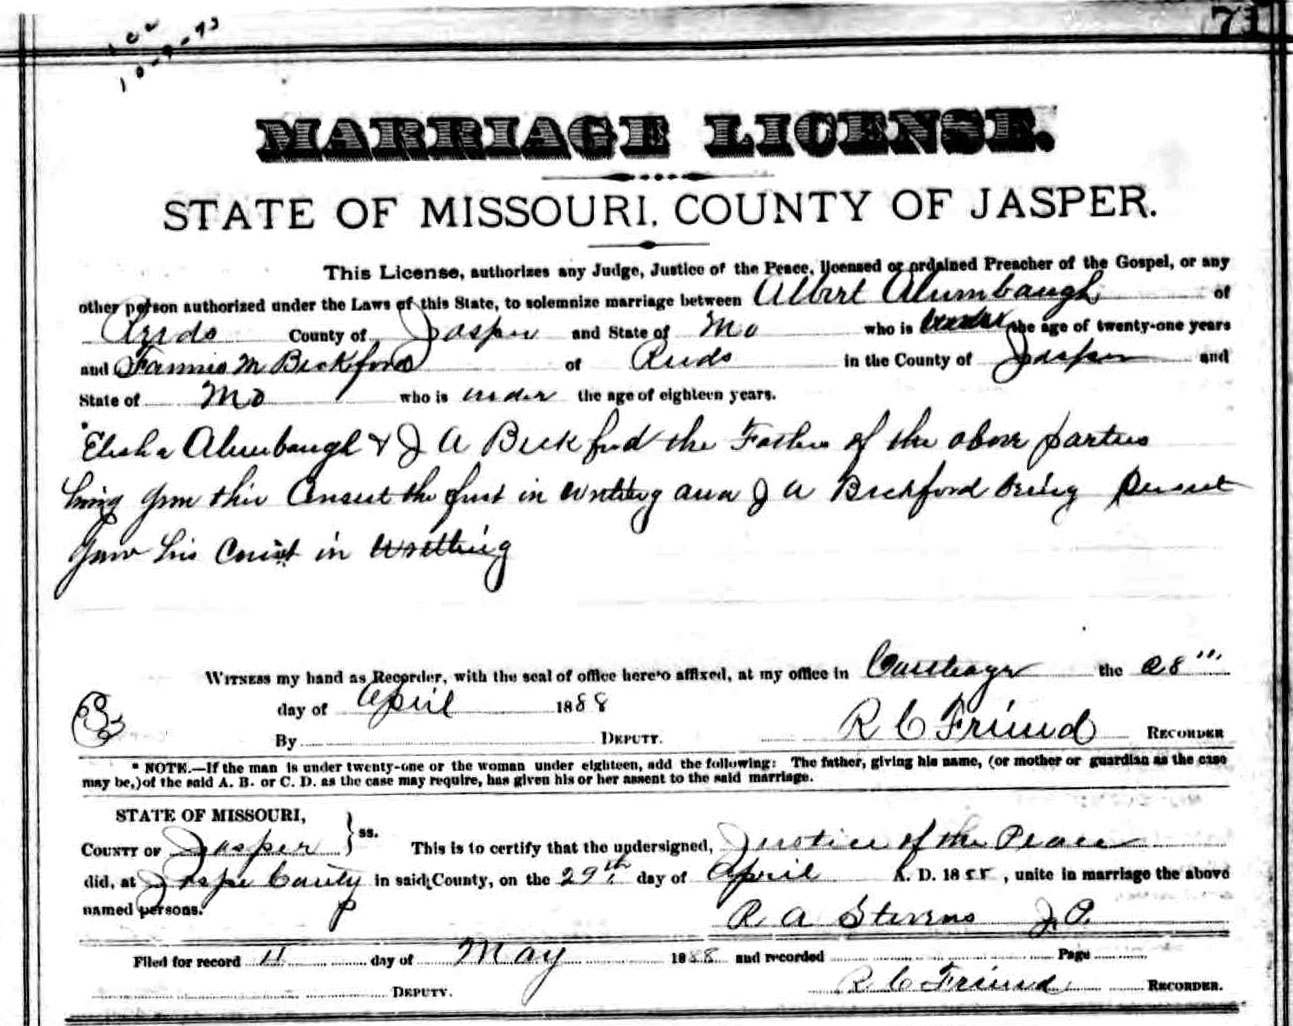 73
10-9-73
MARRIAGE LICENSE.
STATE OF MISSOURI, COUNTY OF JASPER.
This License, authorizes any Judge, Justice of the Peace, licensed or ordained Preacher of the Gospel, or any
other person authorized under the Laws of this State, to solemnize marriage between Albert Alumbaugh of
Reeds County of Jasper and State of Mo who is under the age of twenty-one years
and Fannie M Bickford of Reeds in the County of Jasper and
State of Mo who is under the age of eighteen years.
Elisha Alumbaugh & J A Bickford the Father of the above parties
having given their Consent the first in writing and J A Bickford being present
gave his Consent in writing
WITNESS my hand as Recorder, with the seal of office hereto affixed, at my office in Carthage the 28"
day of April 1888
R C Friend RECORDER
By DEPUTY.
* NOTE.—If the man is under twenty-one or the woman under eighteen, add the following: The father, giving his name, (or mother or guardian as the case
may be,) of the said A. B. or C. D. as the case may require, has given his or her assent to the said marriage.
STATE OF MISSOURI,
COUNTY OF Jasper ss. This is to certify that the undersigned, Justice of the Peace
did, at Jasper County in said County, on the 29th day of April A. D. 1888, unite in marriage the above
named persons.
R A Stevens J. P.
Filed for record 11 day of May 1888 and recorded Page
DEPUTY. R C Friend RECORDER.